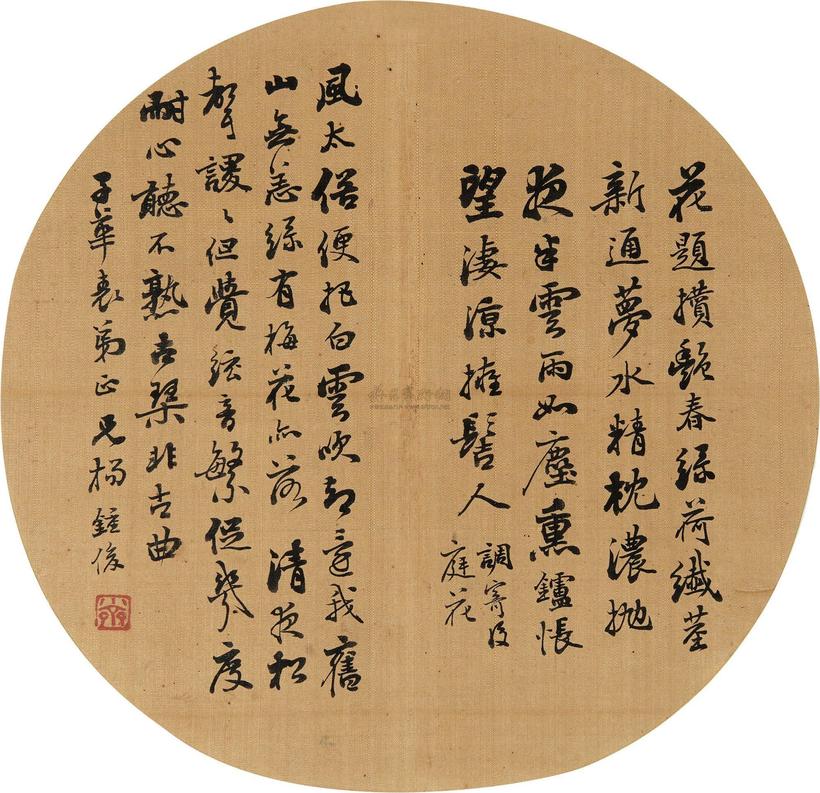 花題攢艷春絲荷纖莖
新通夢水精枕濃拋
夜半雲雨如塵熏鑪悵
望淒涼擁髻人
調寄後
庭花
風太俗便把白雲吹却還我舊
山無恙綠有梅花亦落清夜松
聲謖〻但覺絃音繁促琴度
耐心聽不熟古琴非古曲
子華表弟正兄楊鍾俊